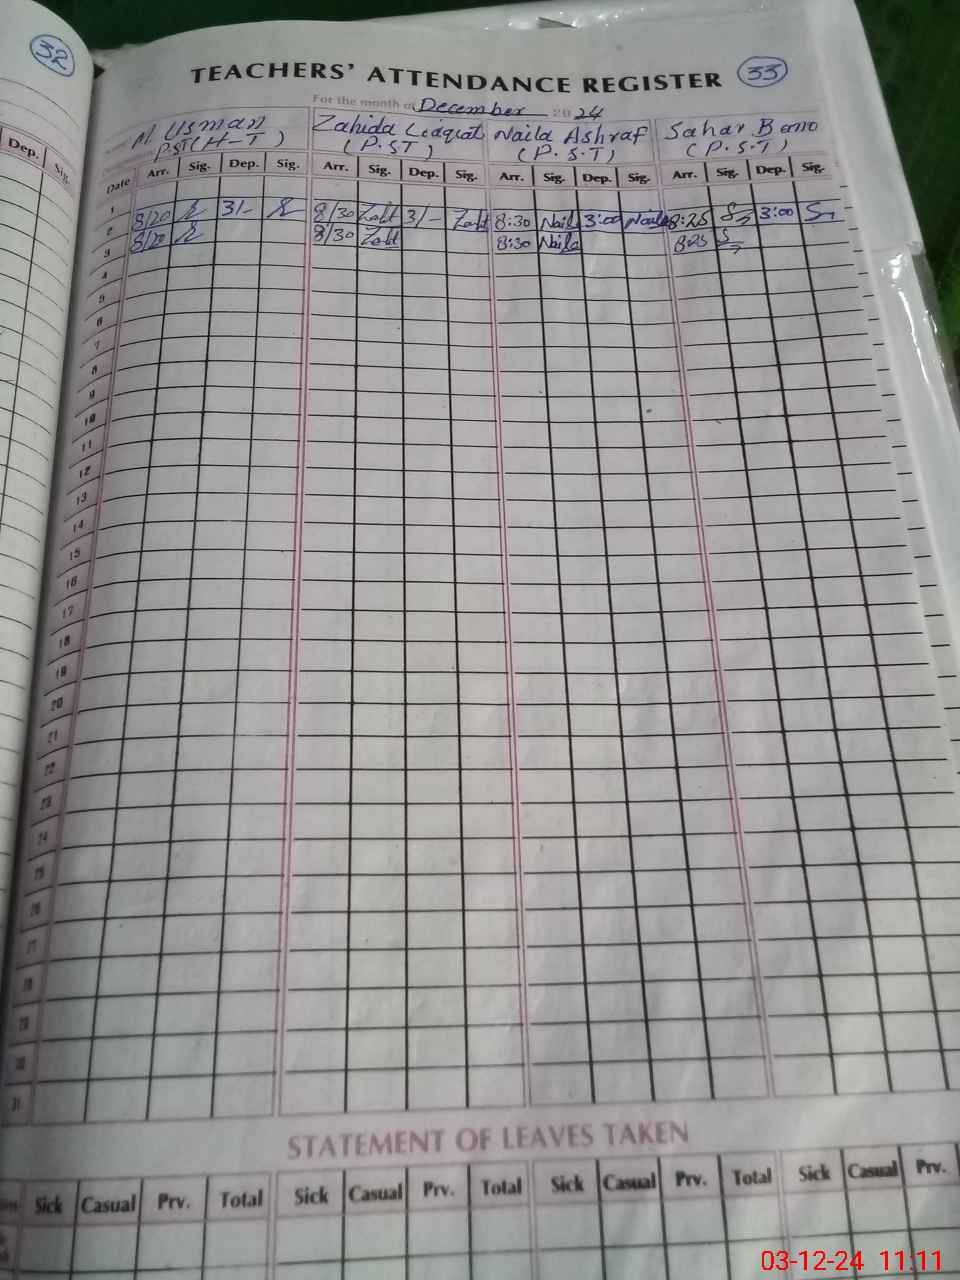 32
Dep. Sig.
TEACHERS' ATTENDANCE REGISTER 33
For the month of December 2024
M. Usman Zahida Liaqat Naila Ashraf Sahar Bano
P.ST (H-T) (P.ST) (P.S.T) (P.S.T)
Date Arr. Sig. Dep. Sig. Arr. Sig. Dep. Sig. Arr. Sig. Dep. Sig. Arr. Sig. Dep. Sig.
1
2 8/20 3/- 8/30 Zaht 3/- Zaht 8:30 Naila 3:00 Naila 8:25 S 3:00 S
3 8/20 8/30 Zaht 8:30 Naila 8:25 S
4
5
6
7
8
9
10
11
12
13
14
15
16
17
18
19
20
21
22
23
24
25
26
27
28
29
30
31
STATEMENT OF LEAVES TAKEN
Sick Casual Prv. Total Sick Casual Prv. Total Sick Casual Prv. Total Sick Casual Prv.
03-12-24 11:11